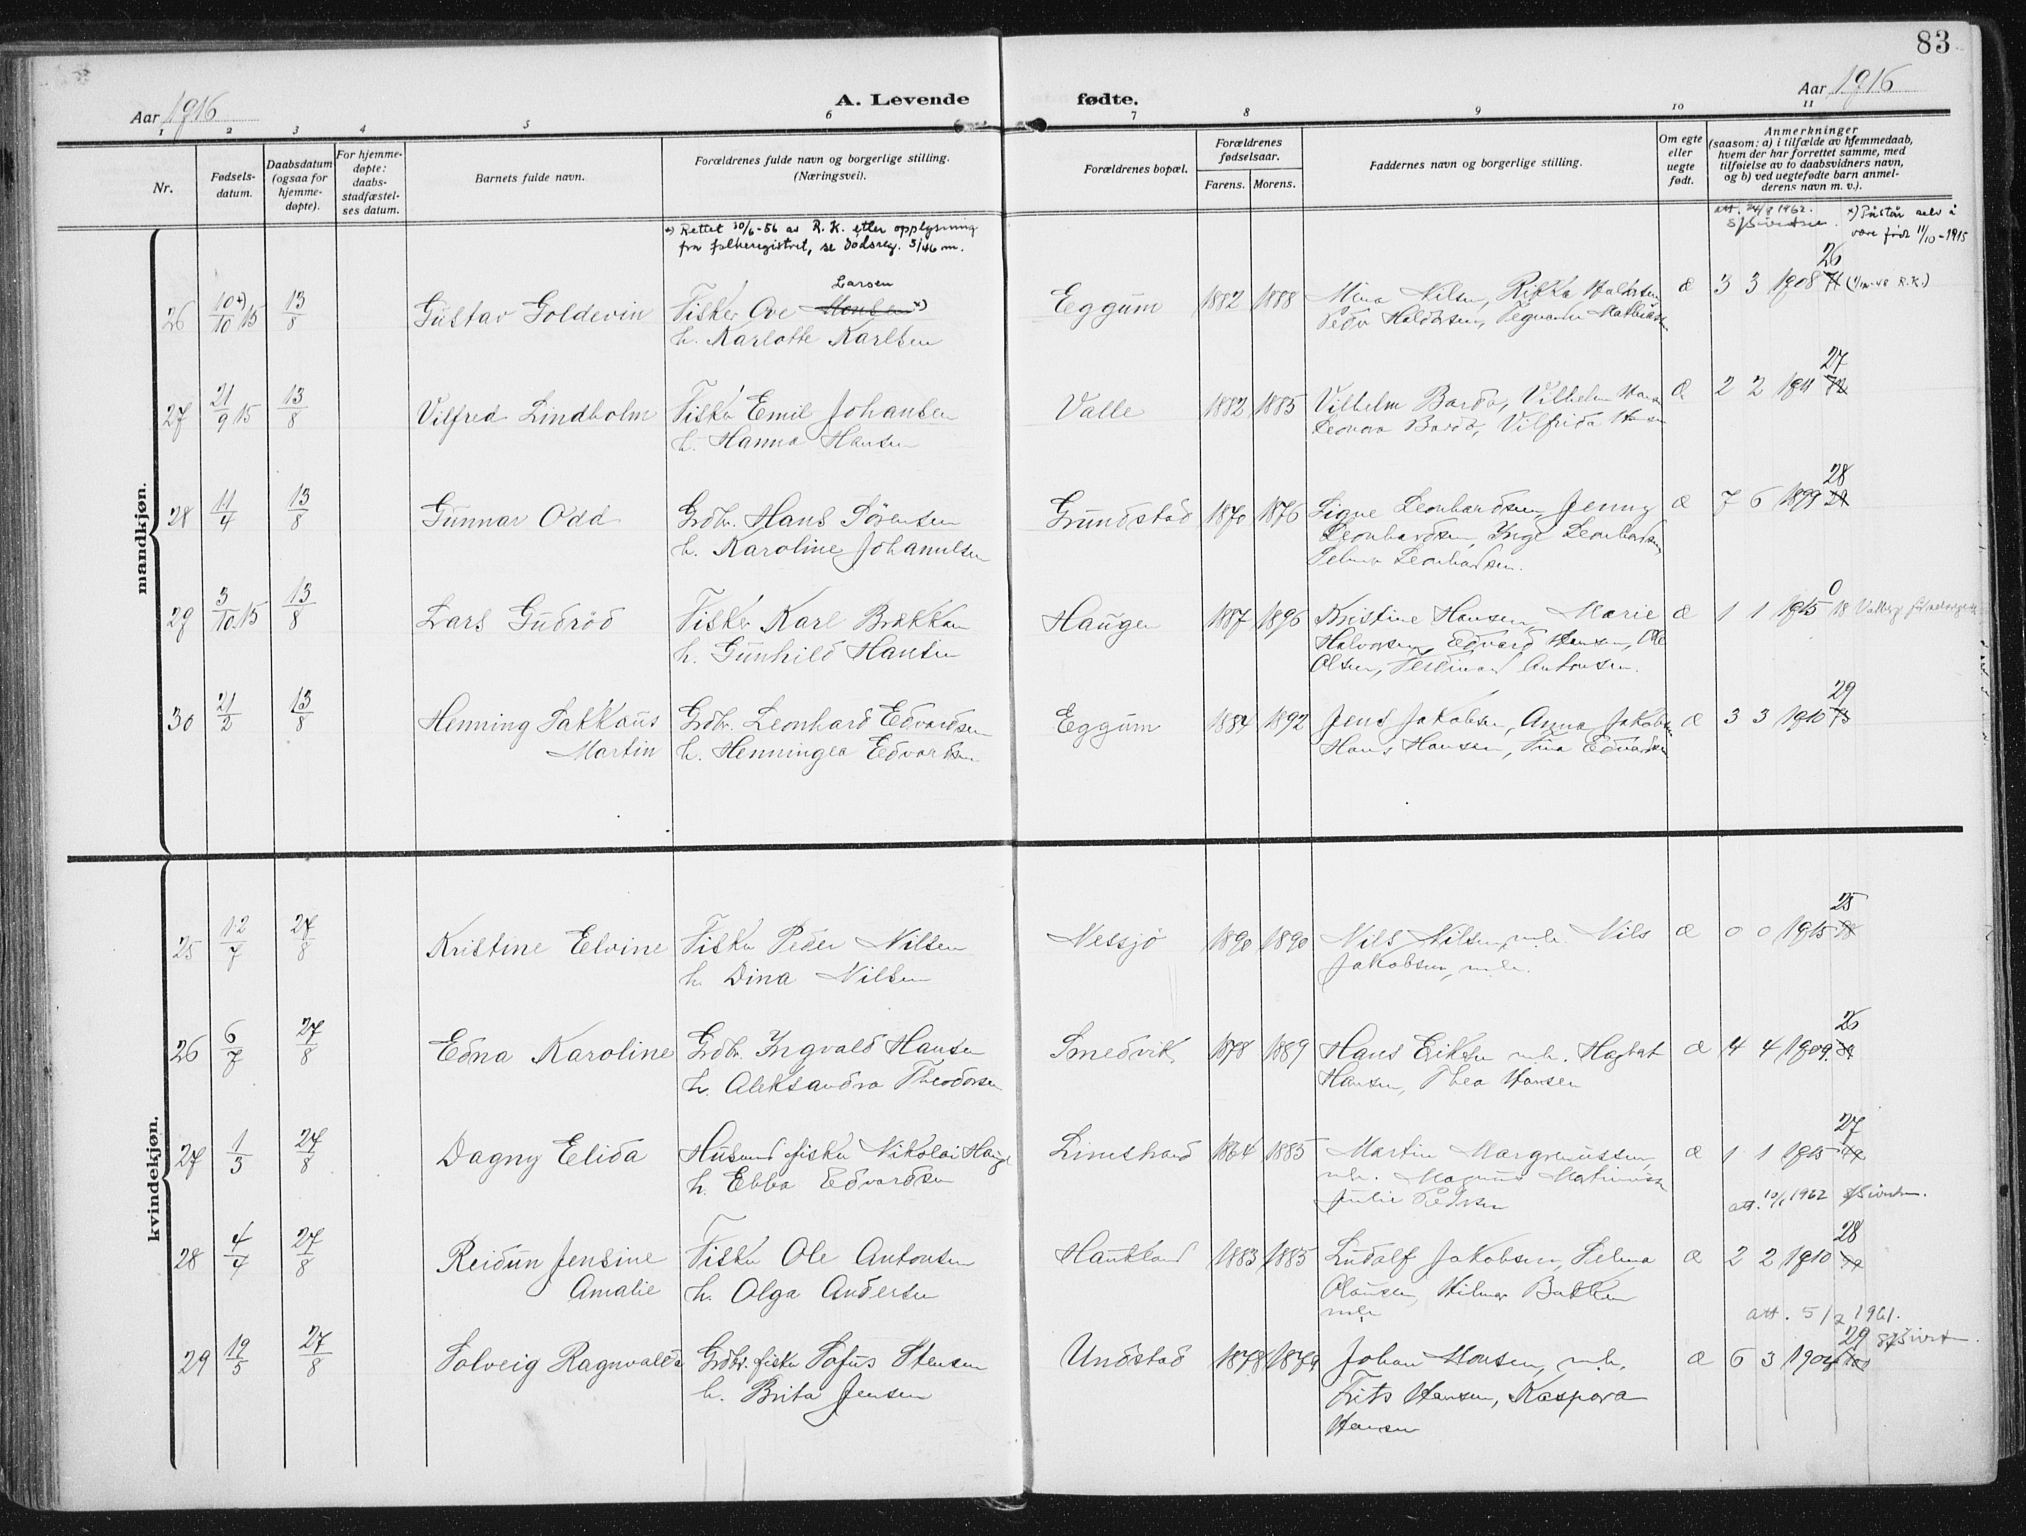 83
Aar 1916
A. Levende fødte.
Aar 1916
1 2 3 4 5 6 7 8 9 10 11
Nr.
Fødsels-
datum.
Daabsdatum
(ogsaa for
hjemme-
døpte).
For hjemme-
døpte:
daabs-
stadfæstel-
ses datum.
Barnets fulde navn.
Forældrenes fulde navn og borgerlige stilling.
(Næringsvei).
Forældrenes bopæl.
Forældrenes
fødselsaar.
Farens. Morens.
Faddernes navn og borgerlige stilling.
Om egte
eller
uegte
født.
Anmerkninger
(saasom: a) i tilfælde av hjemmedaab,
hvem der har forrettet samme, med
tilføielse av to daabsvidners navn,
og b) ved uegtefødte barn anmel-
derens navn m. v.).
*) Rettet 30/6-56 av R. K. etter opplysning
fra folkeregistret, se dødsreg. 3/46 m.
att. 24/8 1962.
*) Påstår selv å
være født 11/10-1915
mandkjøn.
Larsen
26 10*)/10 15 13/8 Gustav Goldevin Fisker Ove Monsen *) Eggum 1882 1888 Mina Nilsen, Rikka Haldorsen æ 3 3 1908 26
h. Karlotte Karlsen Pedr Haldorsen, Mathiassen
27 21/9 15 13/8 Vilfred Lindholm Fisker Emil Johansen Valle 1882 1885 Vilhelm Bardo, Vilhelm Hansen æ 2 2 1911 27
h. Hanna Hansen Leonora Bardo, Vilfrida Hansen
28 11/4 13/8 Gunnar Odd Grdbr. Hans Sørensen Grundstad 1870 1876 Signe Leonhardsen, Jenny æ 7 6 1899 28
h. Karoline Johannesen Leonhardsen, Inga Leonhardsen,
Selma Leonhardsen.
29 3/10.15 13/8 Lars Gudrød Fisker Karl Brekkan Haugen 1887 1896 Kristine Hansen, Marie æ 1 1 1915 0
h. Gunhild Hansen Halvorsen, Edvard Hansen, Ole
Olsen, Ferdinand Antonsen.
30 21/2 13/8 Henning Sakkaus Grdbr. Leonhard Edvardsen Eggum 1884 1892 Jens Jakobsen, Anna Jakobsen æ 3 3 1910 29
Martin h. Henningea Edvardsen Hans Hansen, Tina Edvardsen
kvindekjøn.
25 12/7 27/8 Kristine Elvine Fisker Peder Nilsen Nessjø 1890 1890 Nils Nilsen, m.h. Nils æ 0 0 1915 25
h. Dina Nilsen Jakobsen, m.h.
26 6/7 27/8 Edna Karoline Grdbr. Ingvald Hansen Smedvik 1878 1889 Hans Eriksen m.h. Hagbart æ 4 4 1909. 26
h. Aleksandra Theodorsen Hansen, Thea Hansen
27 1/3 27/8 Dagny Elida Husmd fisker Nikolai Hauge Limstrand 1864 1885 Martin Margreussen, æ 1 1 1915 27
h. Ebba Edvardsen m.h. Magnus Martinussen
Julie Pedersen
att. 10/1 1962
28 4/4 27/8 Reidun Jensine Fisker Ole Antonsen Haukland 1883 1885 Ludolf Jakobsen, Selma æ 2 2 1910 28
Amalie h. Olga Andersen Olausen, Hilmar Bakken
m.h.
att. 5/2 1961.
29 19/5 27/8 Solveig Ragnvalda Grdbr. fisker Sofus Stensen Undstad 1878 1879 Johan Monsen, m.h. æ 6 3 1904 29
h. Brita Jensen Frits Hansen, Kaspara
Hansen